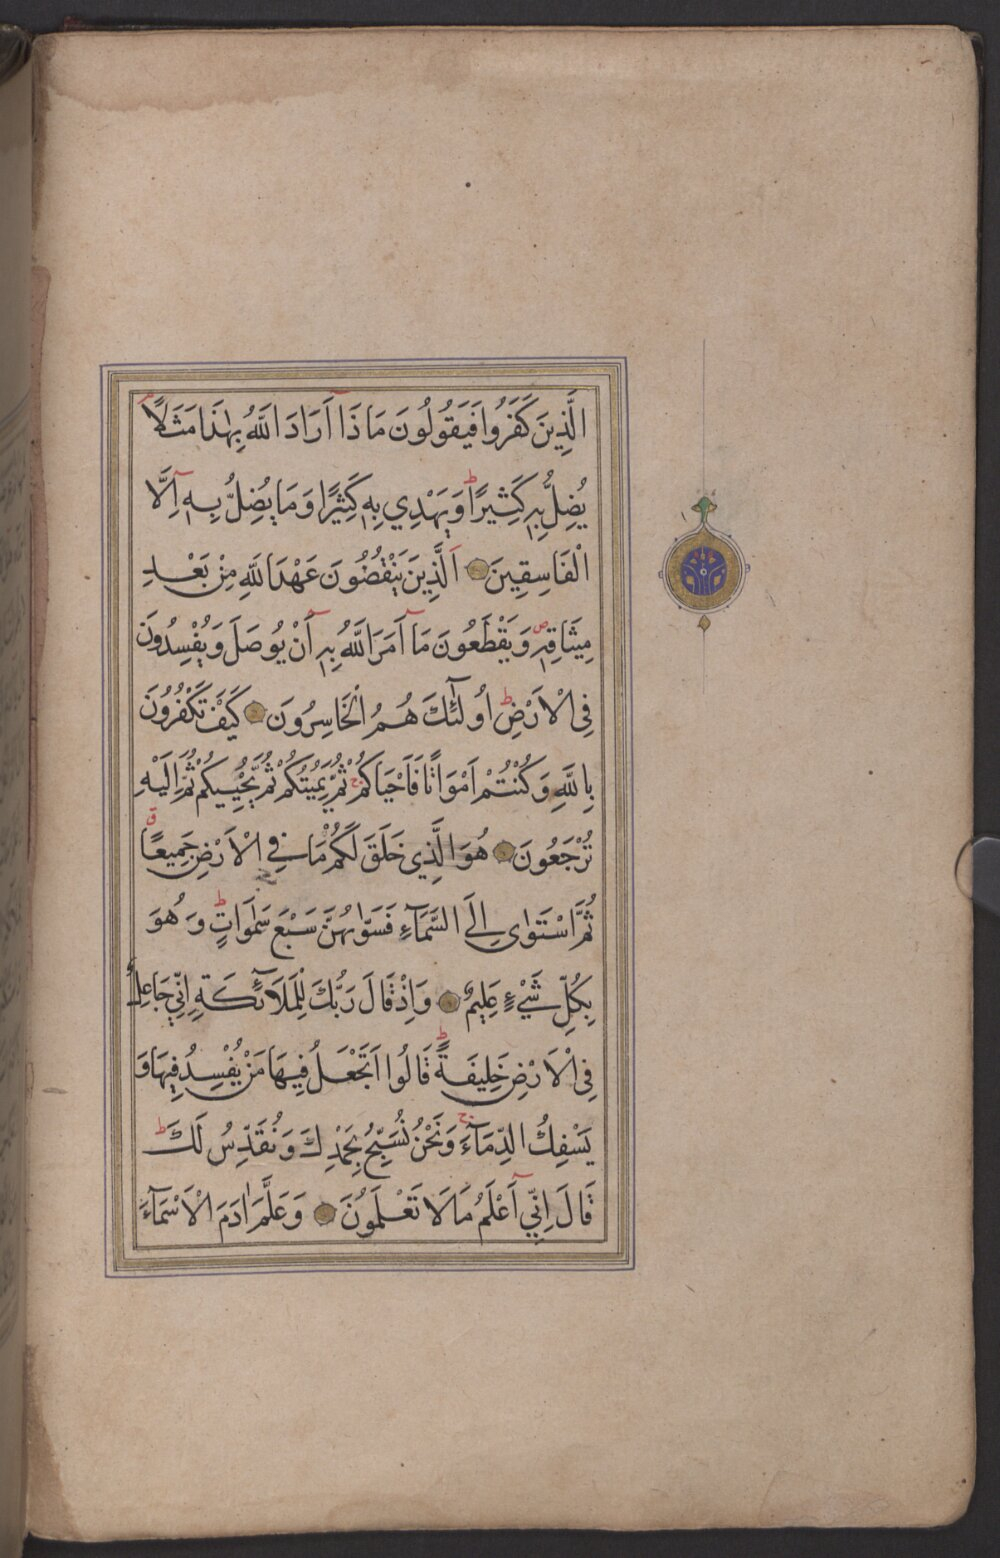 الَّذِينَ كَفَرُوا فَيَقُولُونَ مَاذَا أَرَادَ اللَّهُ بِهٰذَا مَثَلًا
يُضِلُّ بِهِ كَثِيرًا وَيَهْدِي بِهِ كَثِيرًا وَمَا يُضِلُّ بِهِ اِلَّا
الْفَاسِقِينَ اَلَّذِينَ يَنْقُضُونَ عَهْدَ اللَّهِ مِنْ بَعْدِ
مِيثَاقِهِ وَيَقْطَعُونَ مَا اَمَرَ اللَّهُ بِهِ أَنْ يُوصَلَ وَيُفْسِدُونَ
فِي الْاَرْضِ اُولٰٓئِكَ هُمُ الْخَاسِرُونَ كَيْفَ تَكْفُرُونَ
بِاللَّهِ وَكُنْتُمْ اَمْوَاتًا فَاَحْيَاكُمْ ثُمَّ يُمِيتُكُمْ ثُمَّ يُحْيِيكُمْ ثُمَّ اِلَيْهِ
تُرْجَعُونَ هُوَ الَّذِي خَلَقَ لَكُمْ مَا فِي الْاَرْضِ جَمِيعًا
ثُمَّ اسْتَوٰى اِلَى السَّمَآءِ فَسَوّٰيهُنَّ سَبْعَ سَمٰوَاتٍ وَهُوَ
بِكُلِّ شَيْءٍ عَلِيمٌ وَاِذْ قَالَ رَبُّكَ لِلْمَلَآئِكَةِ اِنِّي جَاعِلٌ
فِي الْاَرْضِ خَلِيفَةً قَالُوا اَتَجْعَلُ فِيهَا مَنْ يُفْسِدُ فِيهَا وَ
يَسْفِكُ الدِّمَآءَ وَنَحْنُ نُسَبِّحُ بِحَمْدِكَ وَنُقَدِّسُ لَكَ
قَالَ اِنِّي أَعْلَمُ مَا لَا تَعْلَمُونَ وَعَلَّمَ اٰدَمَ الْاَسْمَآءَ